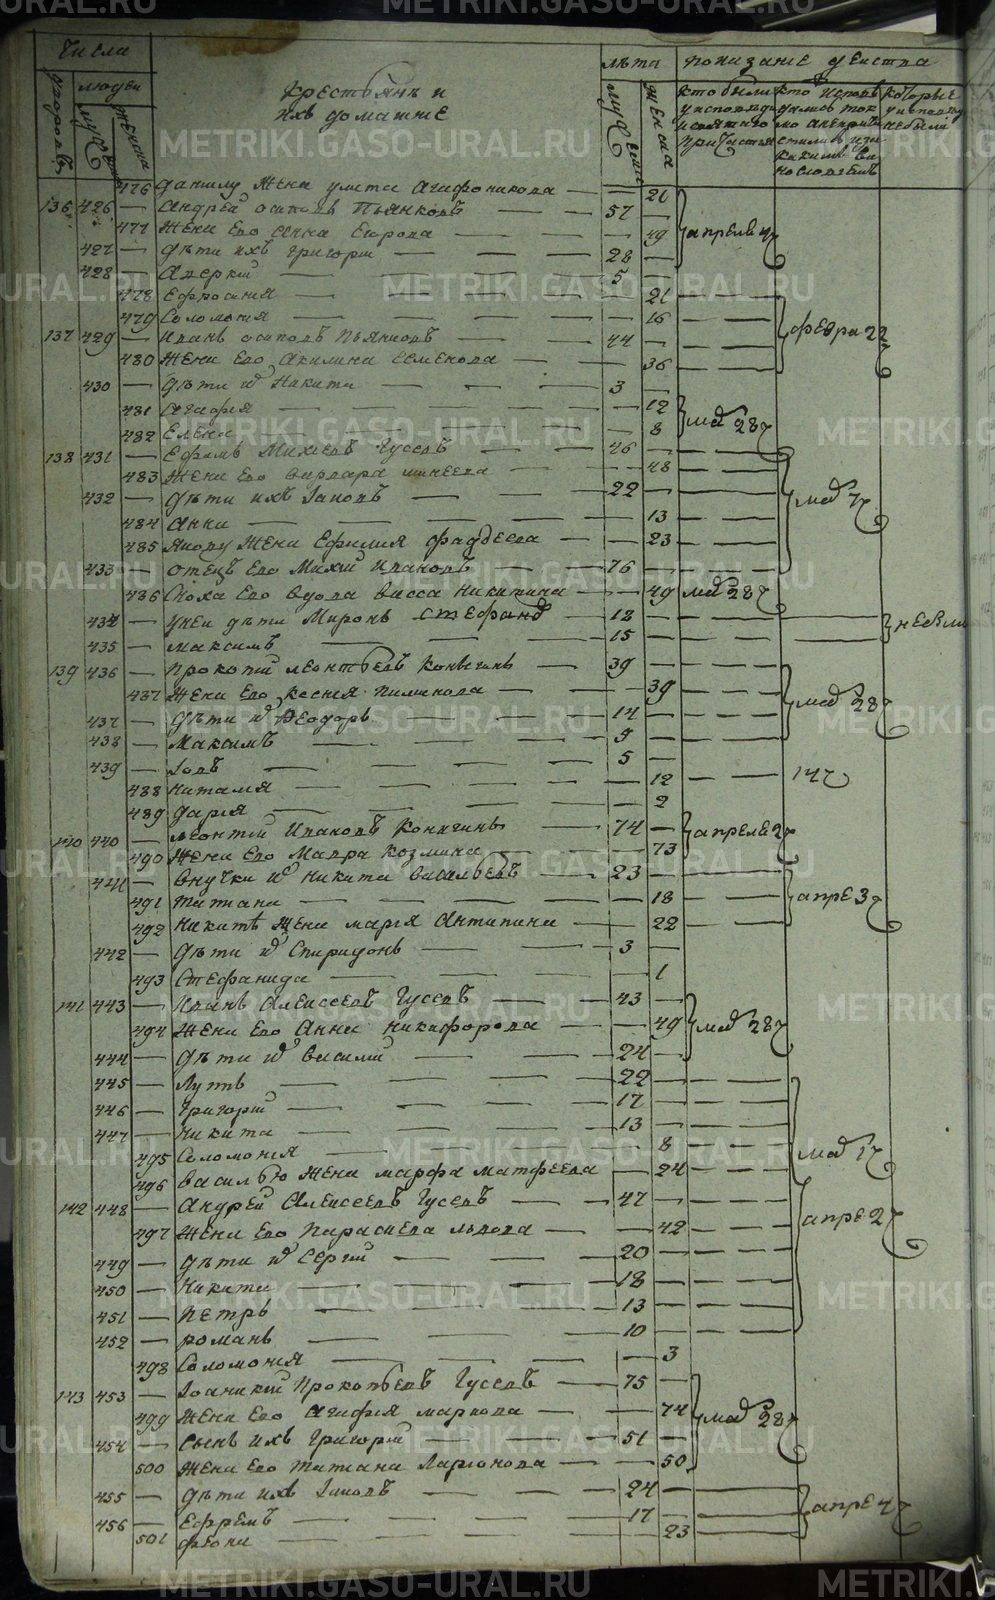 METRIKI.GASO-URAL.RU
Числа
люди
Крестьянъ и
ихъ домашне
лѣта
показание
кто были
у исповеди
и святаго
причастия
которые
у исповеди
не были
476 Данилу жена Агафоникова — 21
136 426 — Андрей Осиповъ Пьянковъ — 57
477 Жена его Анна Егорова — 49 апреля 4
427 — Дѣти ихъ Григори — 28
428 — Аверкий — 5
478 Ефросиния — 21
479 Соломония — 16
137 429 — Иванъ Осиповъ Пьянковъ — 44 февра 22
480 Жена его Акилина Семенова — 36
430 — Дѣти и Никита — 3
481 Агафия — 12
482 Елена — 8 мая 28
138 431 — Ефимъ Михеевъ Гусевъ — 46
483 Жена его Варвара Минеева — 48
432 — Дѣти ихъ Iаковъ — 22 мая
484 Анна — 13
485 Якову жена Ефимия Фаддеева — 23
433 — Отецъ его Михий Ивановъ — 76
486 Сноха его вдова Васса Никитина — 49 мая 28
434 — У неи дѣти Миронъ Стефанов — 18
435 — Максимъ — 15
139 436 — Прокопий Леонтьевъ Конягинъ — 39
487 Жена его Ксения Пименова — 39
437 — Дѣти и Феодоръ — 14 мая 28
438 — Максимъ — 9
439 — Iовъ — 5
488 Наталия — 12
489 Дария — 2
140 440 — Леонтий Ивановъ Конягинъ — 74 апреля 2
490 Жена его Мавра Козмина — 73
441 — Внучки и Никита Васильевъ — 23
491 Татиана — 18 апре 3
492 Никитѣ жена Мария Антипина — 22
442 — Дѣти и Спиридонъ — 3
493 Стефанида — 1
141 443 — Иванъ Алексеевъ Гусевъ — 43
494 Жена его Анна Никифорова — 49 мая 28
444 — Дѣти и Василий — 24
445 — Лупъ — 22
446 — Григорий — 17
447 — Никита — 13
495 Соломония — 8 мая
496 Василью жена Марфа Матфеева — 24
142 448 — Андрей Алексеевъ Гусевъ — 47 апре 2
497 Жена его Параскева Львова — 42
449 — Дѣти и Сергий — 20
450 — Никита — 18
451 — Петръ — 13
452 — Романъ — 10
498 Соломония — 3
143 453 — Iоаникий Прокопьевъ Гусевъ — 75
499 Жена его Агафия Маркова — 74 мая 28
454 — Сынъ ихъ Григорий — 51
500 Жена его Татиана Ларионова — 50
455 — Дѣти ихъ Iаковъ — 24 апре 4
456 — Ефремъ — 17
501 Фиона — 23